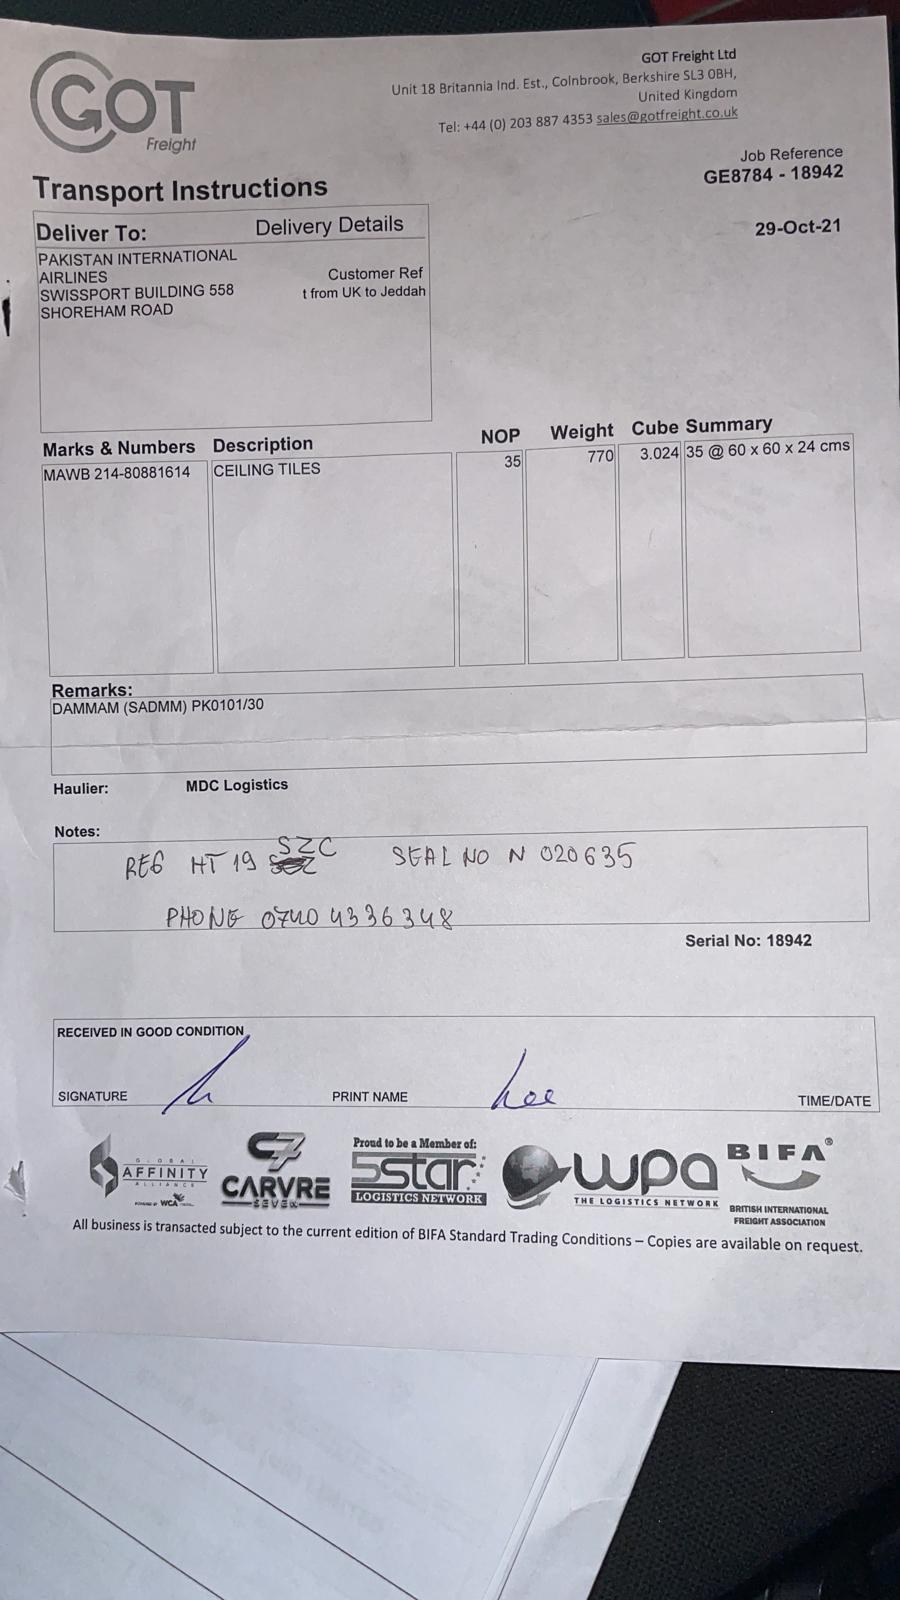 GOT
Freight
GOT Freight Ltd
Unit 18 Britannia Ind. Est., Colnbrook, Berkshire SL3 0BH,
United Kingdom
Tel: +44 (0) 203 887 4353 sales@gotfreight.co.uk
Job Reference
GE8784 - 18942
29-Oct-21
Transport Instructions
Deliver To: Delivery Details
PAKISTAN INTERNATIONAL
AIRLINES
SWISSPORT BUILDING 558
SHOREHAM ROAD
Customer Ref
t from UK to Jeddah
Marks & Numbers Description NOP Weight Cube Summary
MAWB 214-80881614 CEILING TILES 35 770 3.024 35 @ 60 x 60 x 24 cms
Remarks:
DAMMAM (SADMM) PK0101/30
Haulier: MDC Logistics
Notes:
REG HT 19 SZC SEAL NO N 020635
PHONE 0740 4336348
Serial No: 18942
RECEIVED IN GOOD CONDITION
SIGNATURE PRINT NAME Lee TIME/DATE
GLOBAL
AFFINITY
ALLIANCE
POWERED BY WCA
C7
CARVRE
SEVEN
Proud to be a Member of:
5star
LOGISTICS NETWORK
wpa
THE LOGISTICS NETWORK
BIFA®
BRITISH INTERNATIONAL
FREIGHT ASSOCIATION
All business is transacted subject to the current edition of BIFA Standard Trading Conditions – Copies are available on request.